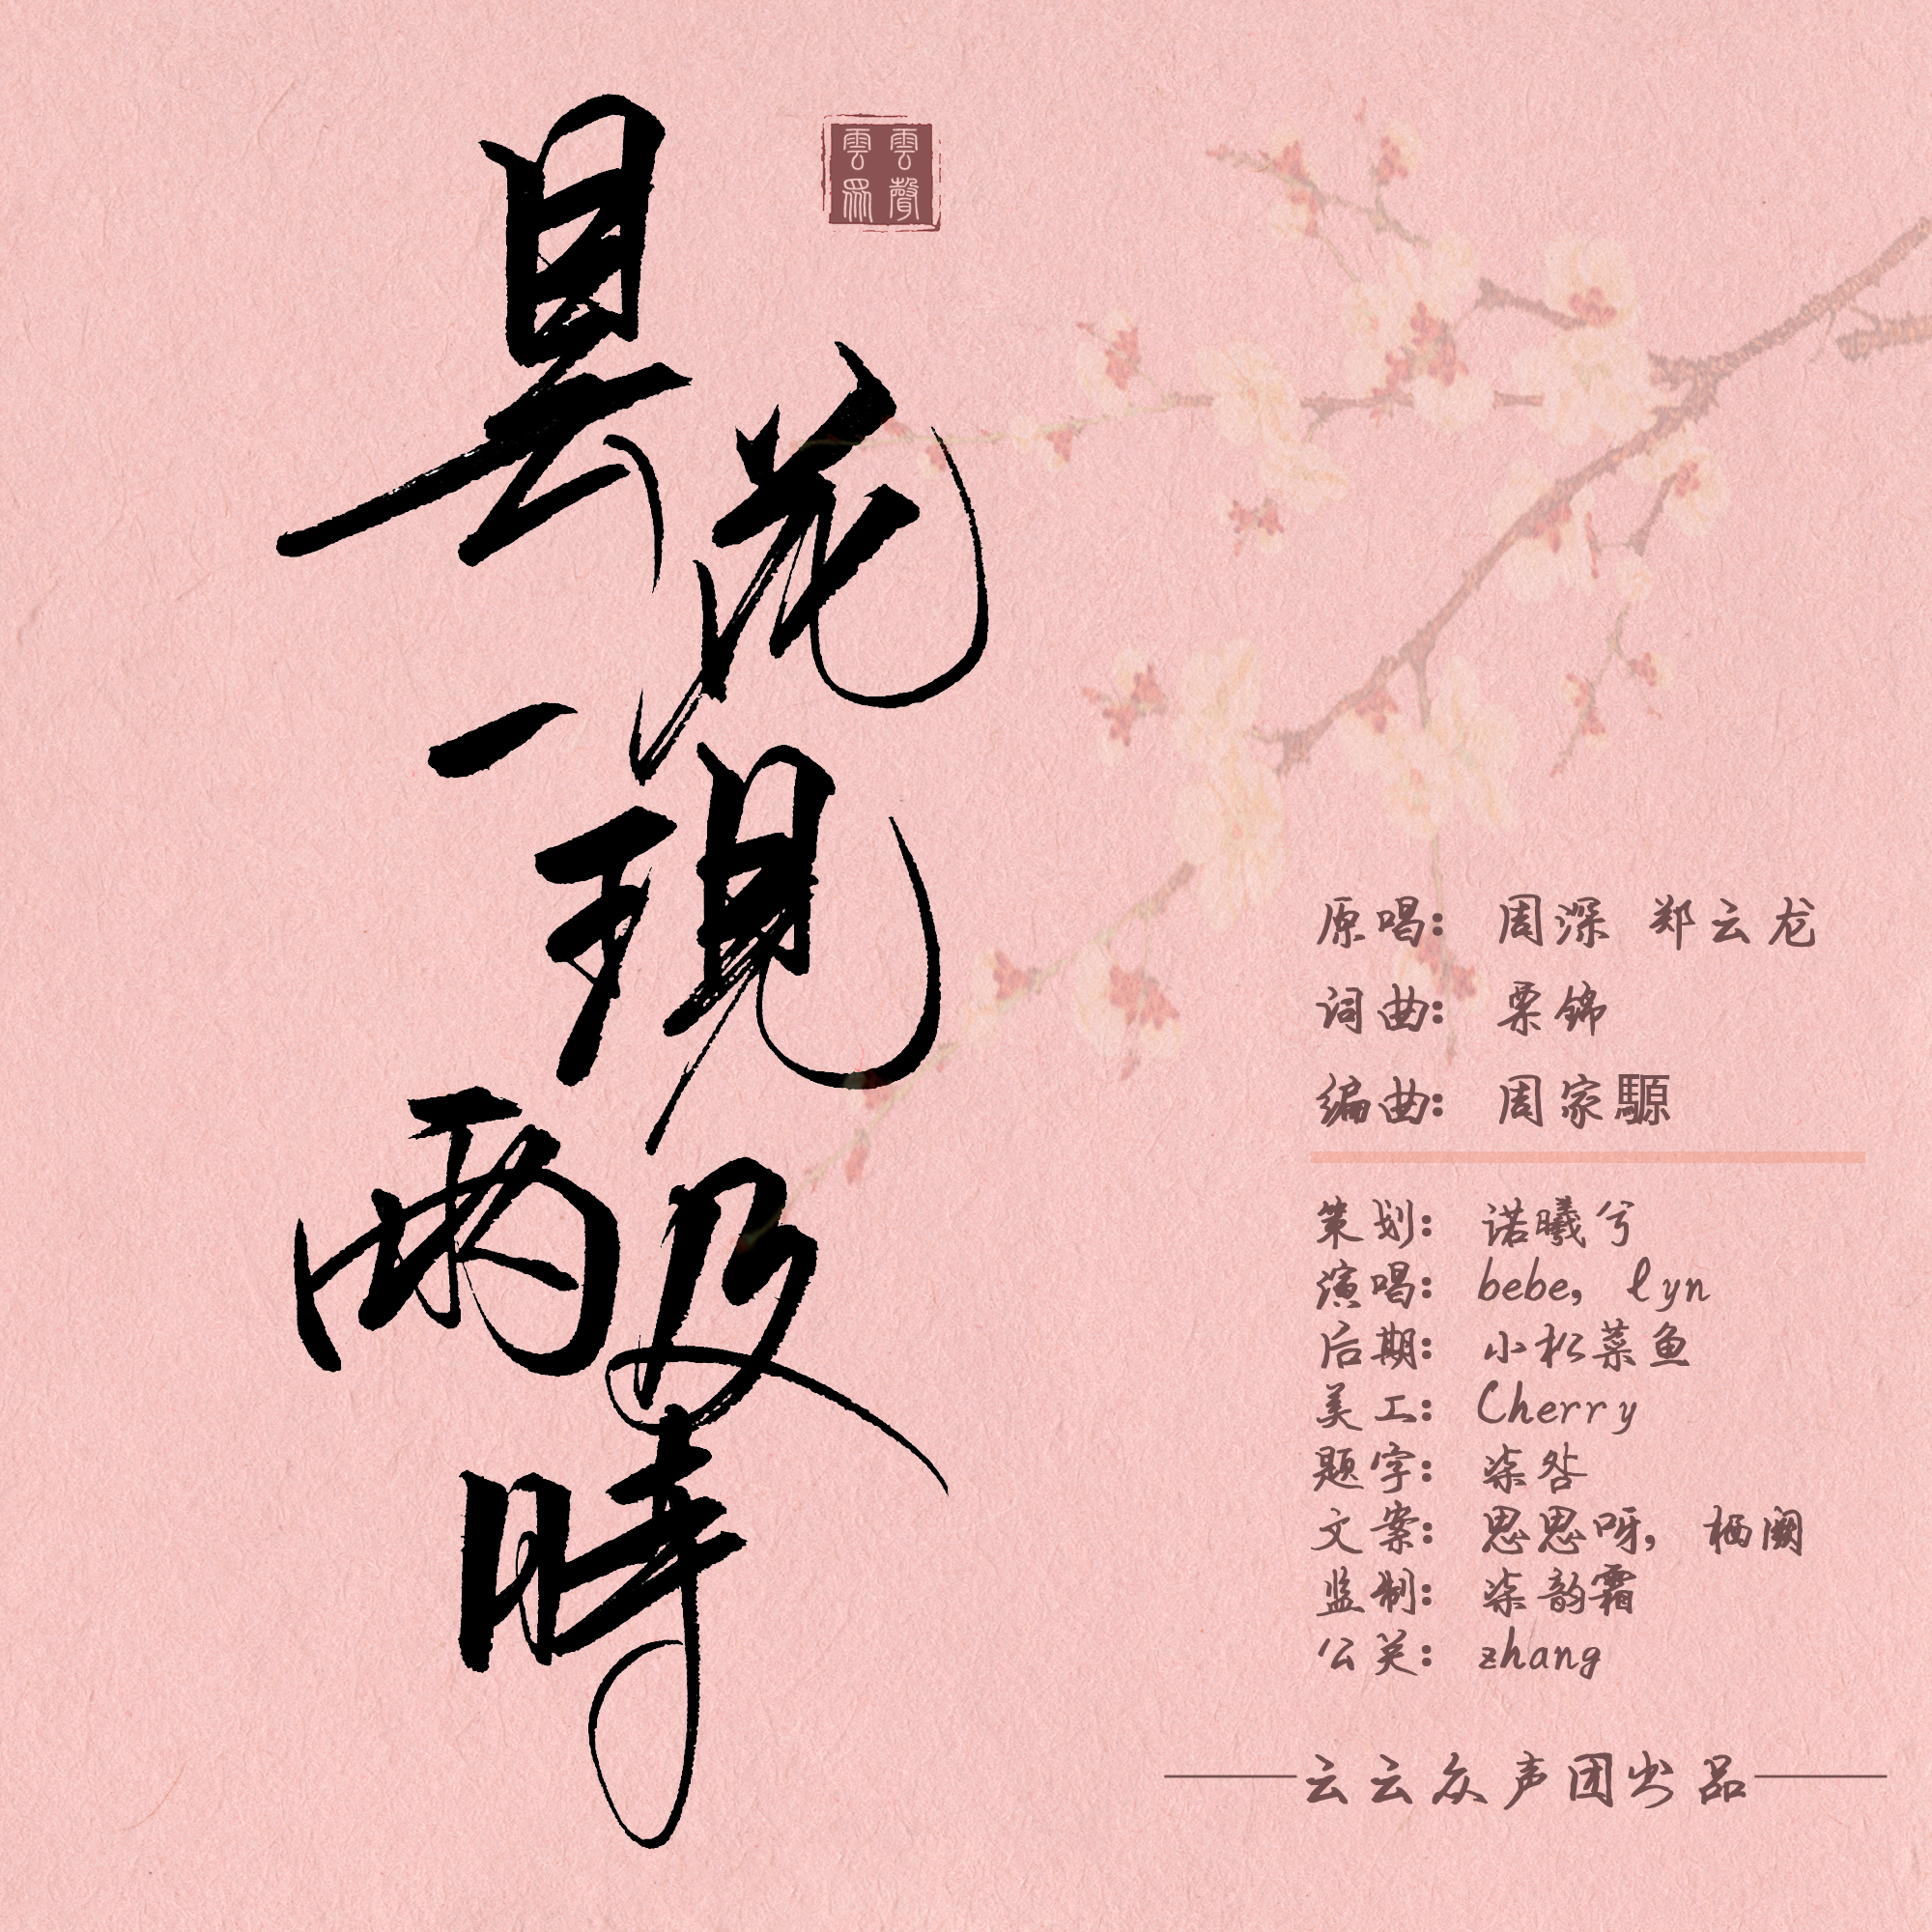 昙花一現雨及時
雲雲
眾聲
原唱: 周深 郑云龙
词曲: 栗锦
编曲: 周家騵
策划: 诺曦兮
演唱: bebe, lyn
后期: 小松菜鱼
美工: Cherry
题字: 柒咎
文案: 思思呀, 栖阙
监制: 柒韵霜
公关: zhang
云云众声团出品